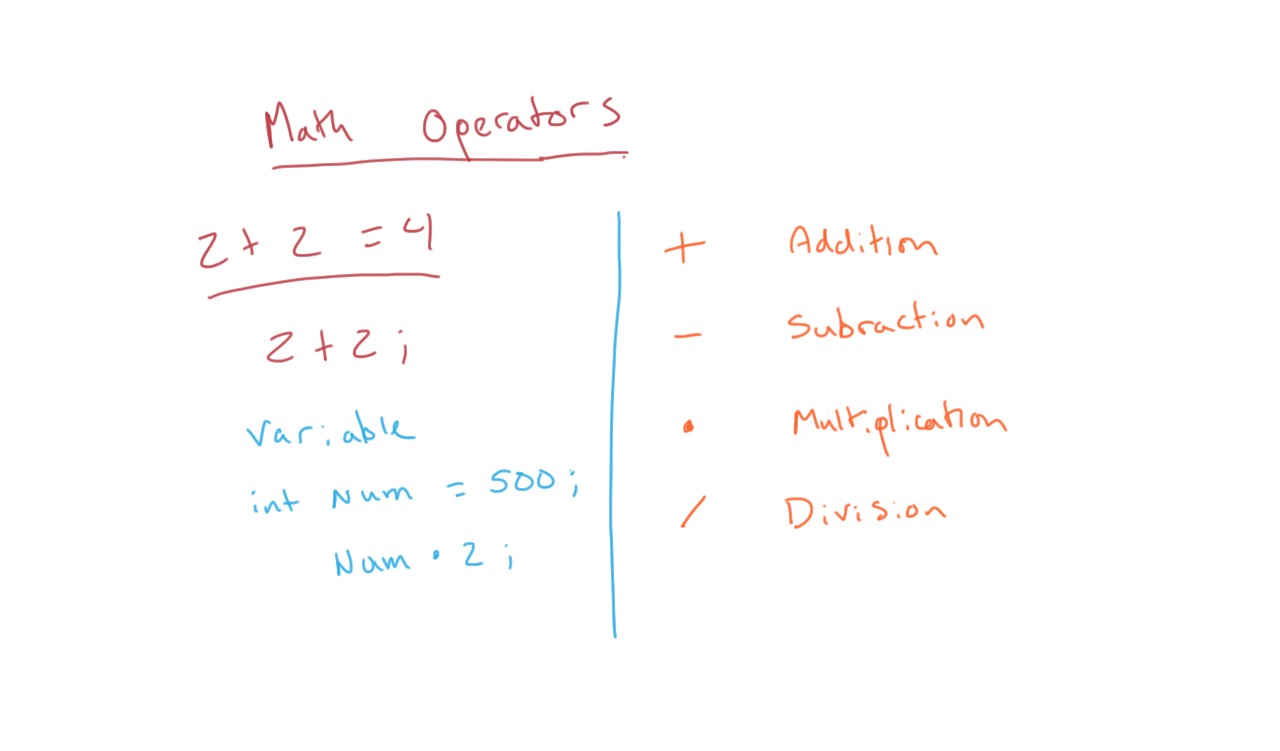 Math Operators
2 + 2 = 4
2 + 2 ;
variable
int Num = 500 ;
Num • 2 ;
+ Addition
- Subraction
• Multiplication
/ Division